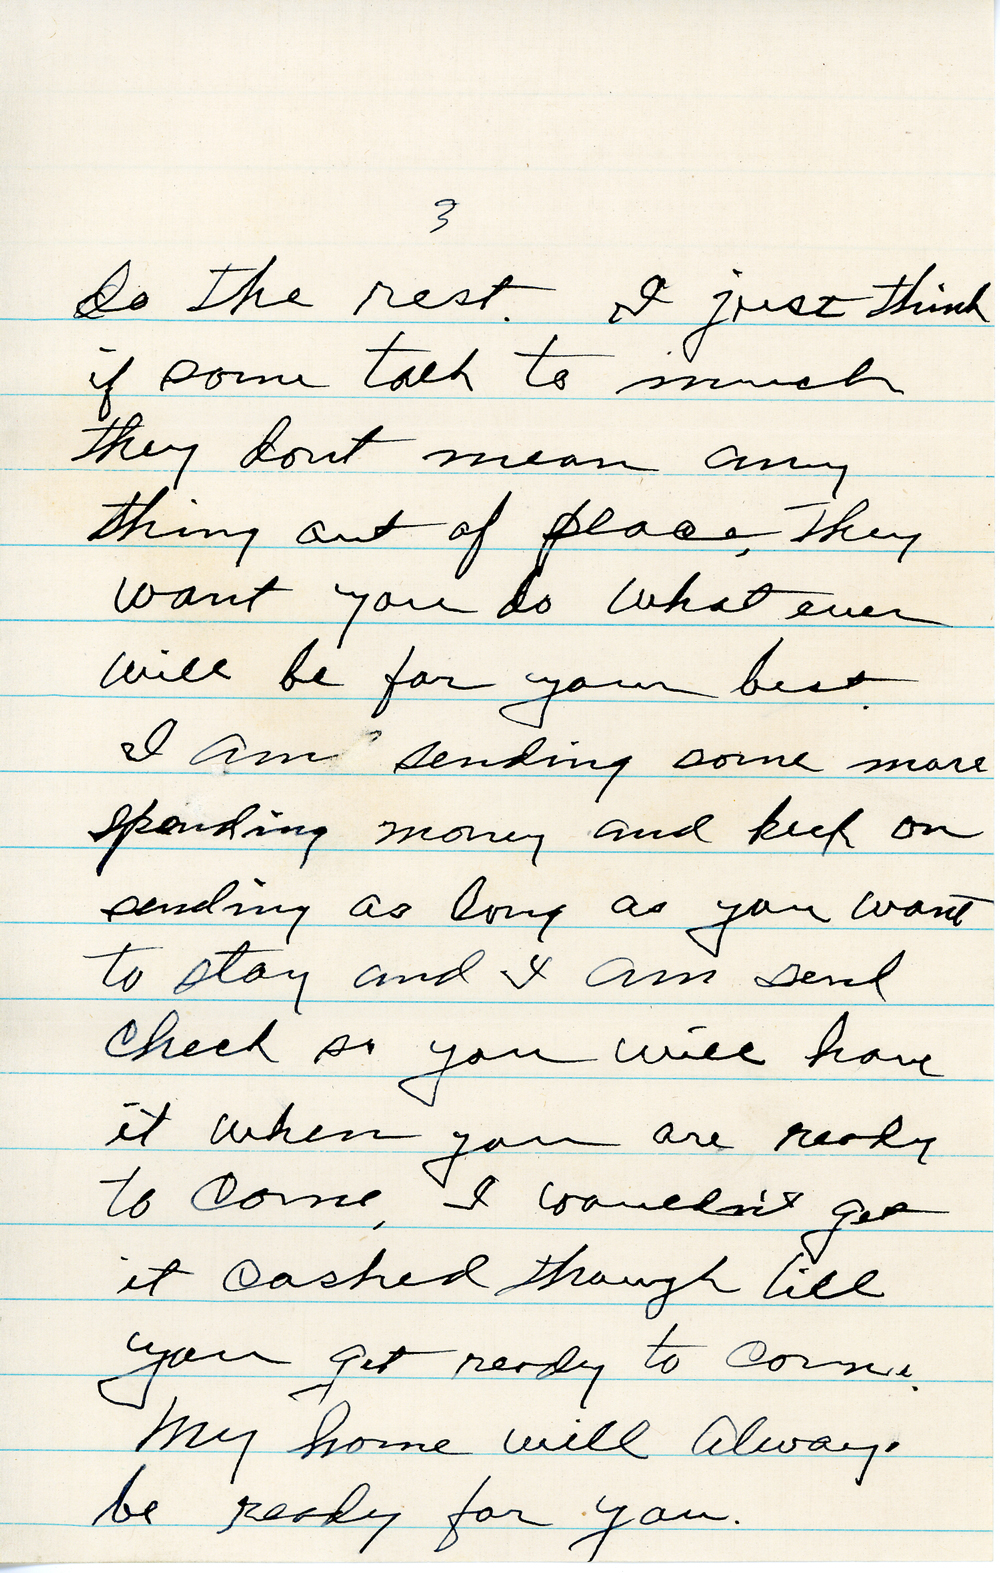 3
do the rest. I just think
if some talk to much
they dont mean any
thing out of place, They
want you do what ever
will be for your best.
I am sending some more
spending money and keep on
sending as long as you want
to stay and I am send
check so you will have
it when you are ready
to come, I wouldn't get
it cashed though till
you get ready to come.
My home will always
be ready for you.